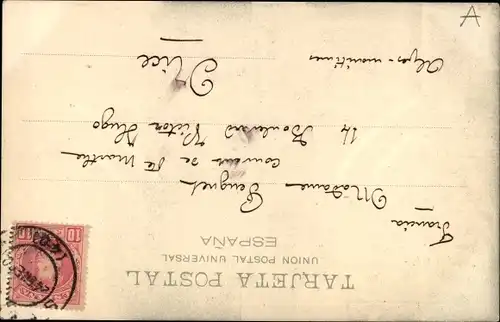 A
TARJETA POSTAL
UNION POSTAL UNIVERSAL
ESPAÑA
Francia
Madame Peugnet
couvent de Ste Marthe
14 Boulevard Victor Hugo
Nice
Alpes-maritimes
10
10